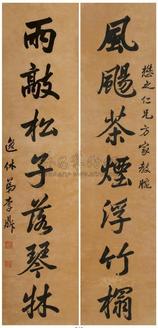 風颺茶煙浮竹榻
懋之仁兄方家教腕
雨敲松子落琴牀
逸休弟李彤